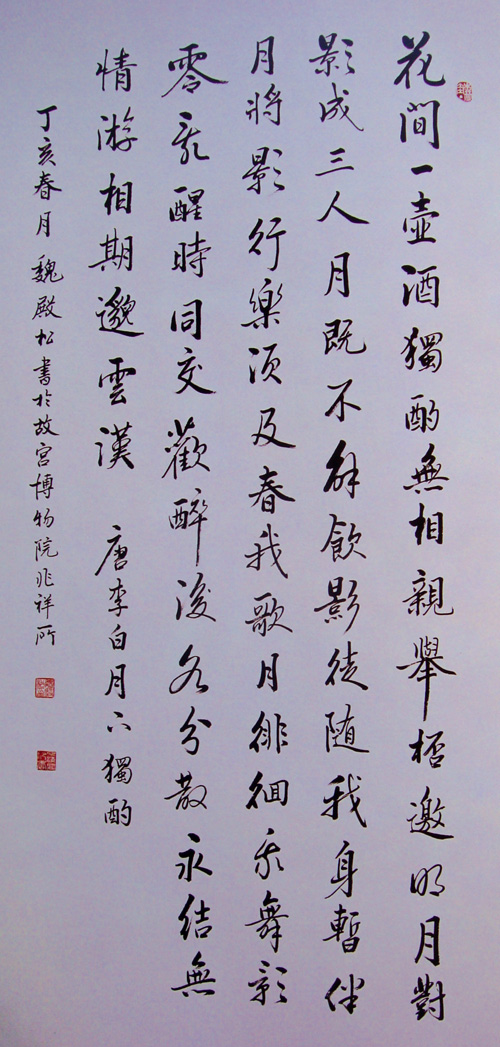 花間一壺酒獨酌無相親舉桮邀明月對
影成三人月既不解飲影徒随我身暫伴
月將影行樂須及春我歌月徘徊我舞影
零亂醒時同交歡醉後各分散永結無
情游相期邈雲漢 唐李白月下獨酌
丁亥春月魏殿松書於故宮博物院兆祥所